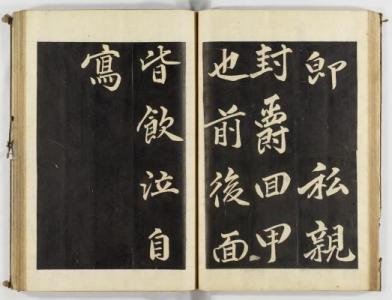 卽 私親
封爵回甲
也前後面
皆飲泣自
寫